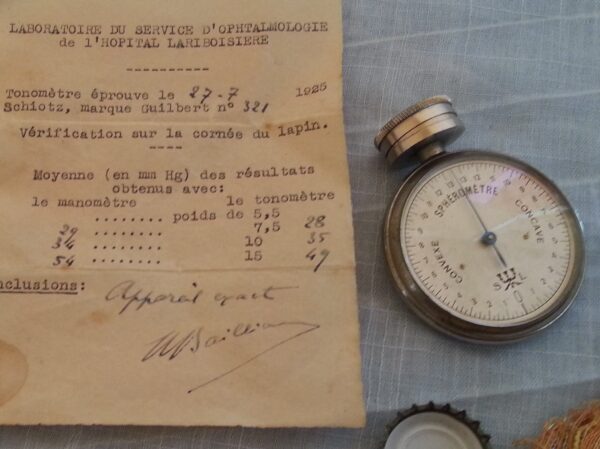 LABORATOIRE DU SERVICE D'OPHTALMOLOGIE
de l'HOPITAL LARIBOISIERE
Tonomètre éprouve le 27-7 1925
Schiotz, marque Guilbert n° 321
Vérification sur la cornée du lapin.
Moyenne (en mm Hg) des résultats
obtenus avec:
le manomètre le tonomètre
........ poids de 5,5
29 ........ 7,5 28
34 ........ 10 35
54 ........ 15 49
nclusions: Appareil exact
SPHÉROMÈTRE
CONCAVE
CONVEXE
S L
0